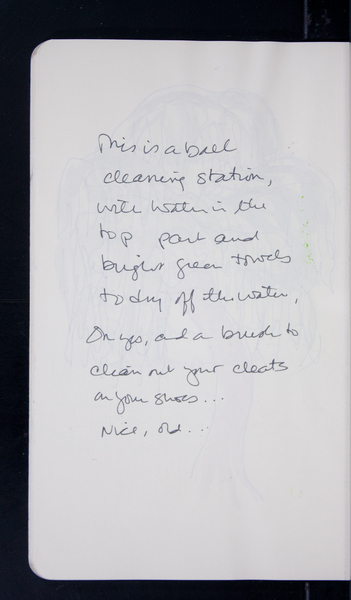 This is a ball
cleaning station,
with water in the
top part and
bright green towels
to dry off the water,
Oh yes, and a brush to
clean out your cleats
on your shoes...
Nice, old...